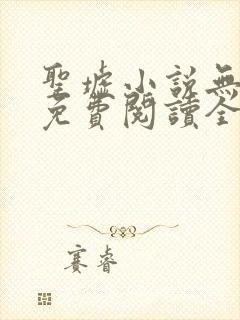 聖墟小説無
免費閱讀全
賽睿